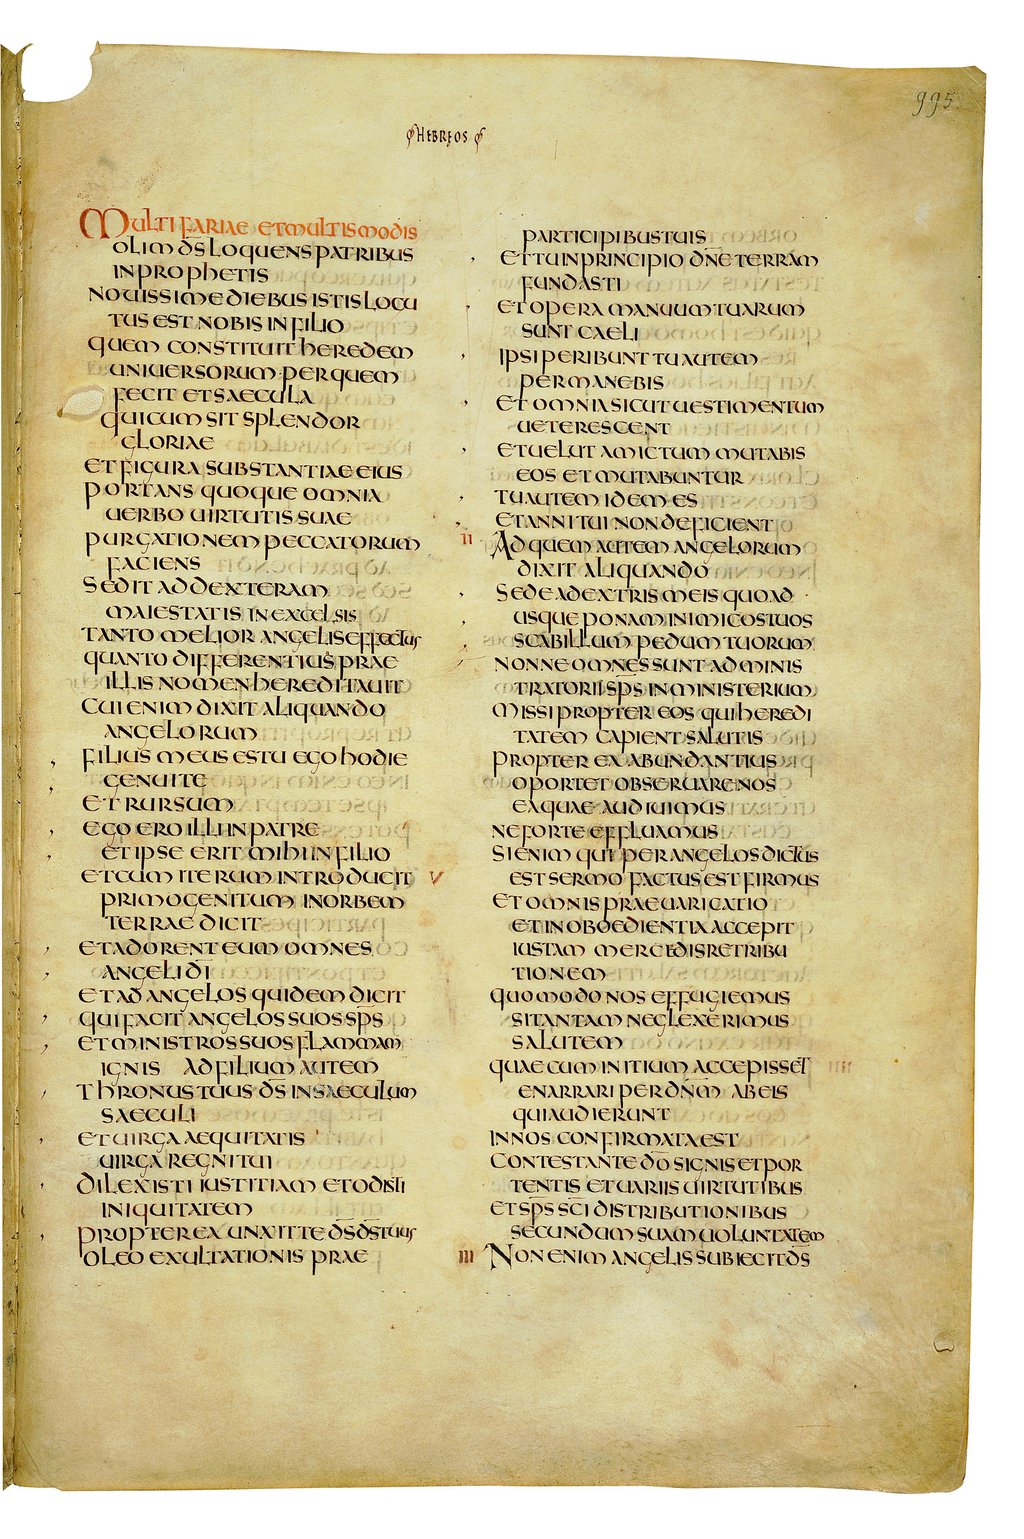 995
HEBREOS
MULTIFARIAE ET MULTIS MODIS
OLIM D̅S̅ LOQUENS PATRIBUS
IN PROPHETIS
NOUISSIME DIEBUS ISTIS LOCU
TUS EST NOBIS IN FILIO
QUEM CONSTITUIT HEREDEM
UNIUERSORUM PER QUEM
FECIT ET SAECULA
QUI CUM SIT SPLENDOR
GLORIAE
ET FIGURA SUBSTANTIAE EIUS
PORTANS QUOQUE OMNIA
UERBO UIRTUTIS SUAE
PURGATIONEM PECCATORUM
FACIENS
SEDIT AD DEXTERAM
MAIESTATIS IN EXCELSIS
TANTO MELIOR ANGELIS EFFECTUS
QUANTO DIFFERENTIUS PRAE
ILLIS NOMEN HEREDITAUIT
CUI ENIM DIXIT ALIQUANDO
ANGELORUM
FILIUS MEUS ES TU EGO HODIE
GENUI TE
ET RURSUM
EGO ERO ILLI IN PATRE
ET IPSE ERIT MIHI IN FILIO
ET CUM ITERUM INTRODUCIT
PRIMOGENITUM IN ORBEM
TERRAE DICIT
ET ADORENT EUM OMNES
ANGELI D̅I̅
ET AD ANGELOS QUIDEM DICIT
QUI FACIT ANGELOS SUOS S̅P̅S̅
ET MINISTROS SUOS FLAMMAM
IGNIS AD FILIUM AUTEM
THRONUS TUUS D̅S̅ IN SAECULUM
SAECULI
ET UIRGA AEQUITATIS
UIRGA REGNI TUI
DILEXISTI IUSTITIAM ET ODISTI
INIQUITATEM
PROPTEREA UNXIT TE D̅S̅ D̅S̅ TUUS
OLEO EXULTATIONIS PRAE
PARTICIPIBUS TUIS
ET TU IN PRINCIPIO D̅N̅E̅ TERRAM
FUNDASTI
ET OPERA MANUUM TUARUM
SUNT CAELI
IPSI PERIBUNT TU AUTEM
PERMANEBIS
ET OMNIA SICUT UESTIMENTUM
UETERESCENT
ET UELUT AMICTUM MUTABIS
EOS ET MUTABUNTUR
TU AUTEM IDEM ES
ET ANNI TUI NON DEFICIENT
II AD QUEM AUTEM ANGELORUM
DIXIT ALIQUANDO
SEDE A DEXTRIS MEIS QUOAD
USQUE PONAM INIMICOS TUOS
SCABILLUM PEDUM TUORUM
NONNE OMNES SUNT ADMINIS
TRATORII S̅P̅S̅ IN MINISTERIUM
MISSI PROPTER EOS QUI HEREDI
TATEM CAPIENT SALUTIS
PROPTEREA ABUNDANTIUS
OPORTET OBSERUARE NOS
EA QUAE AUDIUIMUS
NE FORTE EFFLUAMUS
SI ENIM QUI PER ANGELOS DICTUS
EST SERMO FACTUS EST FIRMUS
ET OMNIS PRAEUARICATIO
ET INOBOEDIENTIA ACCEPIT
IUSTAM MERCEDIS RETRIBU
TIONEM
QUOMODO NOS EFFUGIEMUS
SI TANTAM NEGLEXERIMUS
SALUTEM
QUAE CUM INITIUM ACCEPISSET
ENARRARI PER D̅N̅M̅ AB EIS
QUI AUDIERUNT
IN NOS CONFIRMATA EST
CONTESTANTE D̅O̅ SIGNIS ET POR
TENTIS ET UARIIS UIRTUTIBUS
ET S̅P̅S̅ S̅C̅I̅ DISTRIBUTIONIBUS
SECUNDUM SUAM UOLUNTATEM
III NON ENIM ANGELIS SUBIECIT D̅S̅